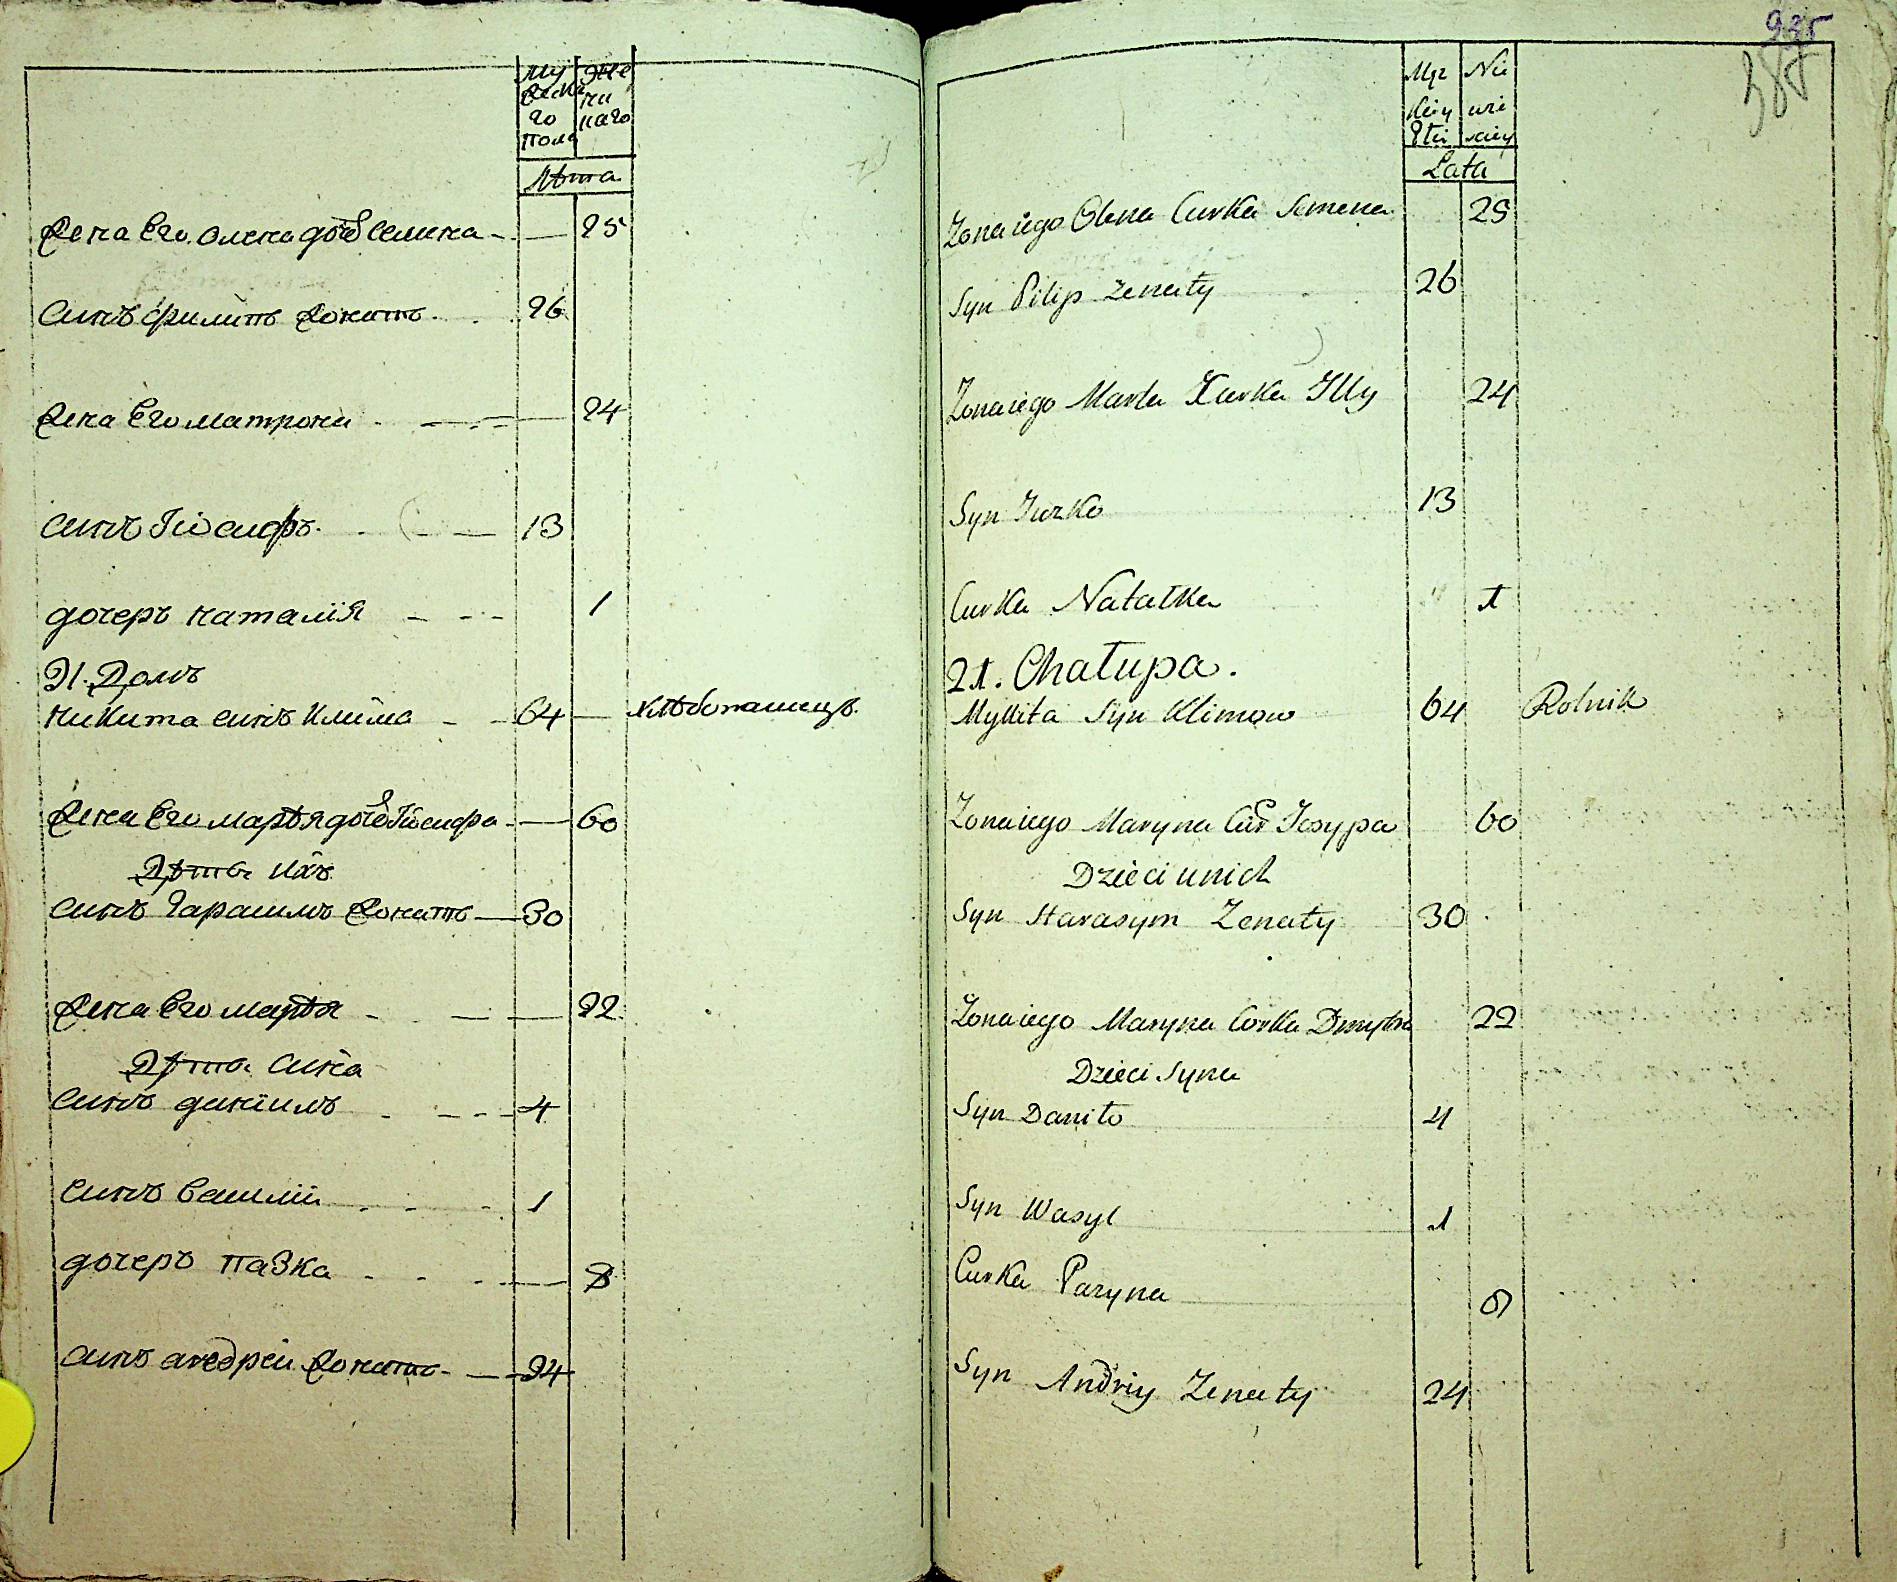 Му
жеска
го
пола
Же
на
наго
Лѣта
Жена Его Олена дочь Семена - 25
Синъ Филипъ жонатъ 26
Жена Его Матрона 24
Синъ Гіосифъ 13
дочеръ Наталія 1
21. Домъ
Никита синъ Клима 64 хлѣбопашецъ
Жена Его Марѣя дочь Гіосифа 60
Дѣти ихъ
Синъ Гарасимъ жонатъ 30
Жена Его Марѣя 22
Дѣти Сина
Синъ Даніилъ 4
Синъ Василій 1
дочеръ Пазка 8
Синъ Андрей жонатъ 24
935
Mę
skiey
Płci
Nie
wie
sciey
Lata
Zona iego Olena Curka Semena 25
Syn Pilip Zenaty 26
Zona iego Marta Curka Illy 24
Syn Jurko 13
Curka Natałka 1
21. Chałupa.
Mykita Syn Klimow 64 Rolnik
Zona iego Maryna Cur Josypa 60
Dzieci unich
Syn Harasym Zenaty 30
Zona iego Maryna Corka Dmytra 22
Dzieci Syna
Syn Daniło 4
Syn Wasyl 1
Curka Pazyna
Syn Andriy Zenaty 24